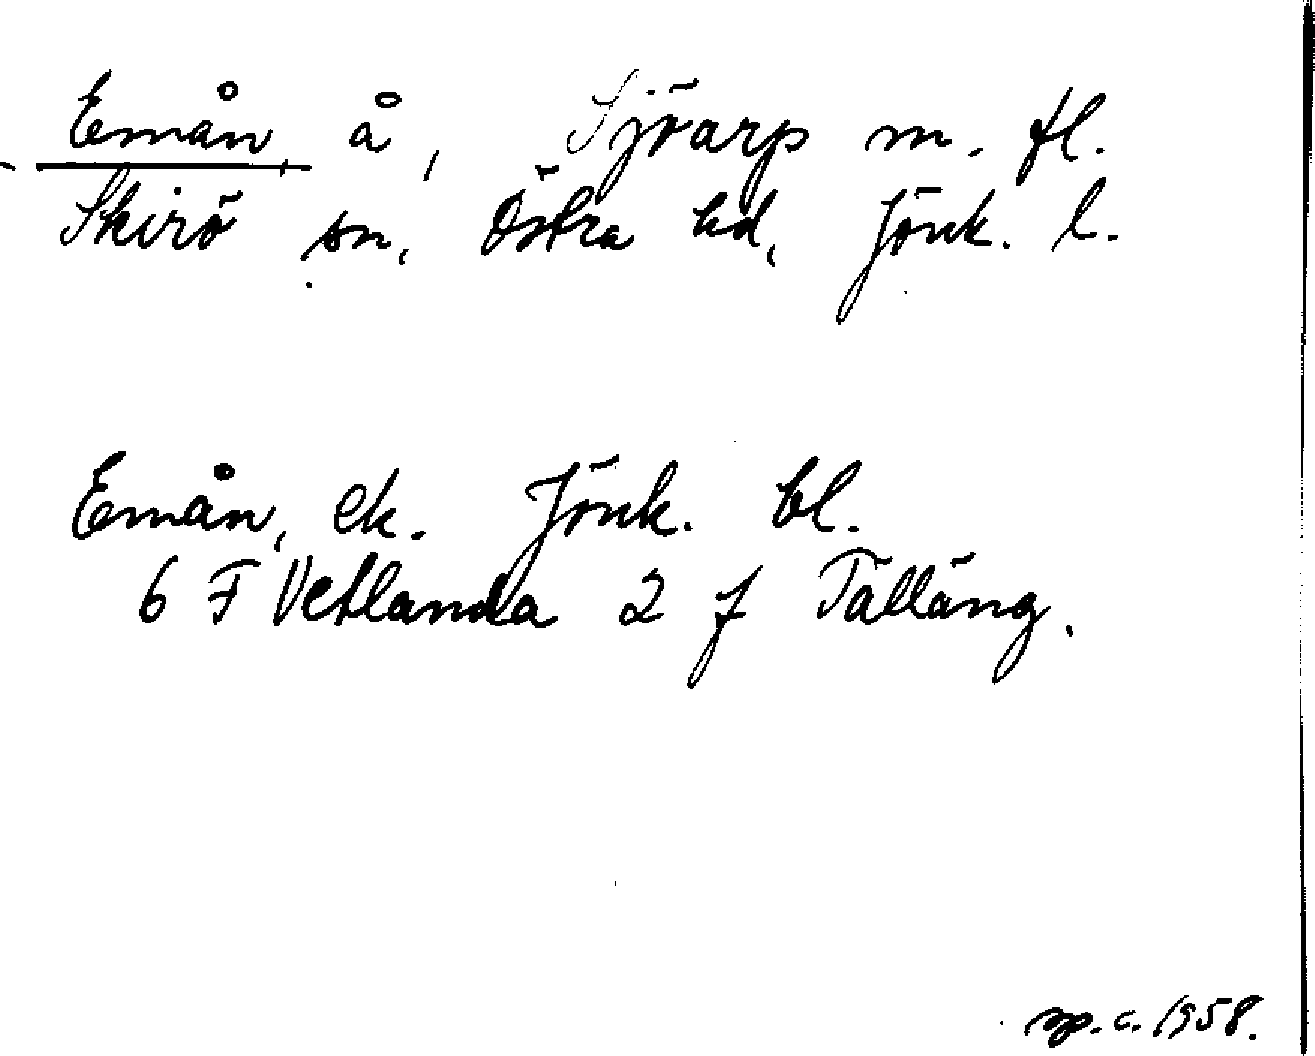 Emån, å, Sjöarp m. fl.
Skirö sn, Östra hd, Jönk. l.
Emån, ek. Jönk. bl.
6 F Vetlanda 2 f Tälläng.
op. c. 1958.